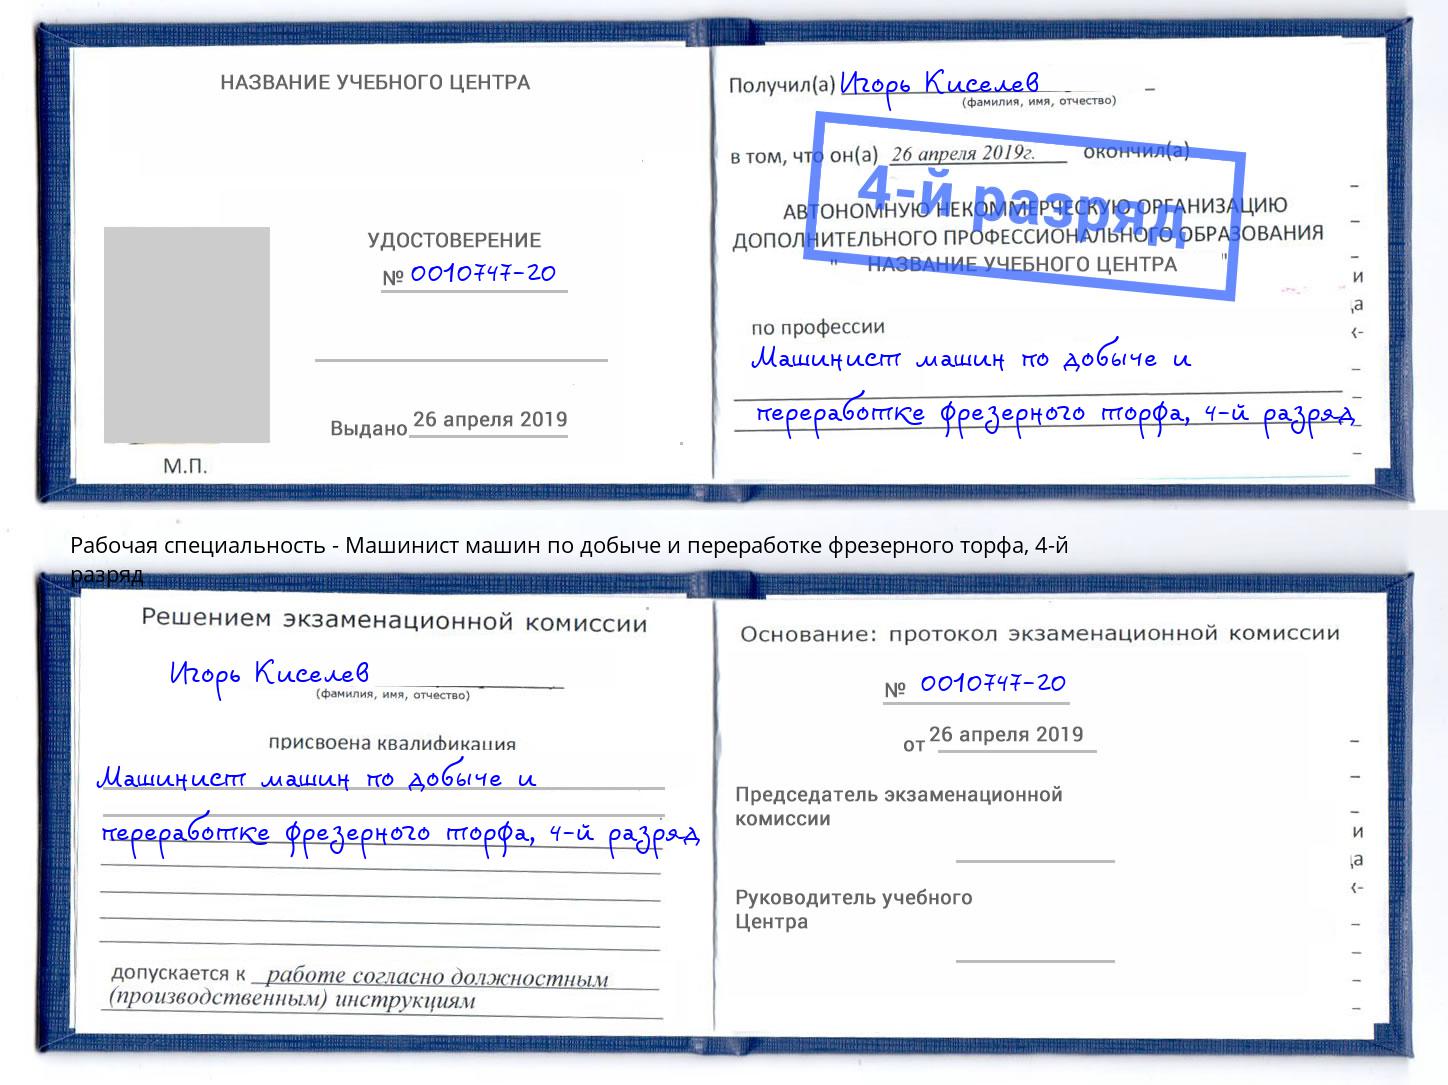 НАЗВАНИЕ УЧЕБНОГО ЦЕНТРА
УДОСТОВЕРЕНИЕ
№ 0010747-20
Выдано 26 апреля 2019
М.П.
Получил(а) Игорь Киселев
(фамилия, имя, отчество)
в том, что он(а) 26 апреля 2019г. окончил(а)
4-й разряд
АВТОНОМНУЮ НЕКОММЕРЧЕСКУЮ ОРГАНИЗАЦИЮ
ДОПОЛНИТЕЛЬНОГО ПРОФЕССИОНАЛЬНОГО ОБРАЗОВАНИЯ
" НАЗВАНИЕ УЧЕБНОГО ЦЕНТРА "
по профессии
Машинист машин по добыче и
переработке фрезерного торфа, 4-й разряд
Рабочая специальность - Машинист машин по добыче и переработке фрезерного торфа, 4-й
разряд
Решением экзаменационной комиссии
Игорь Киселев
(фамилия, имя, отчество)
присвоена квалификация
Машинист машин по добыче и
переработке фрезерного торфа, 4-й разряд
допускается к работе согласно должностным
(производственным) инструкциям
Основание: протокол экзаменационной комиссии
№ 0010747-20
от 26 апреля 2019
Председатель экзаменационной
комиссии
Руководитель учебного
Центра